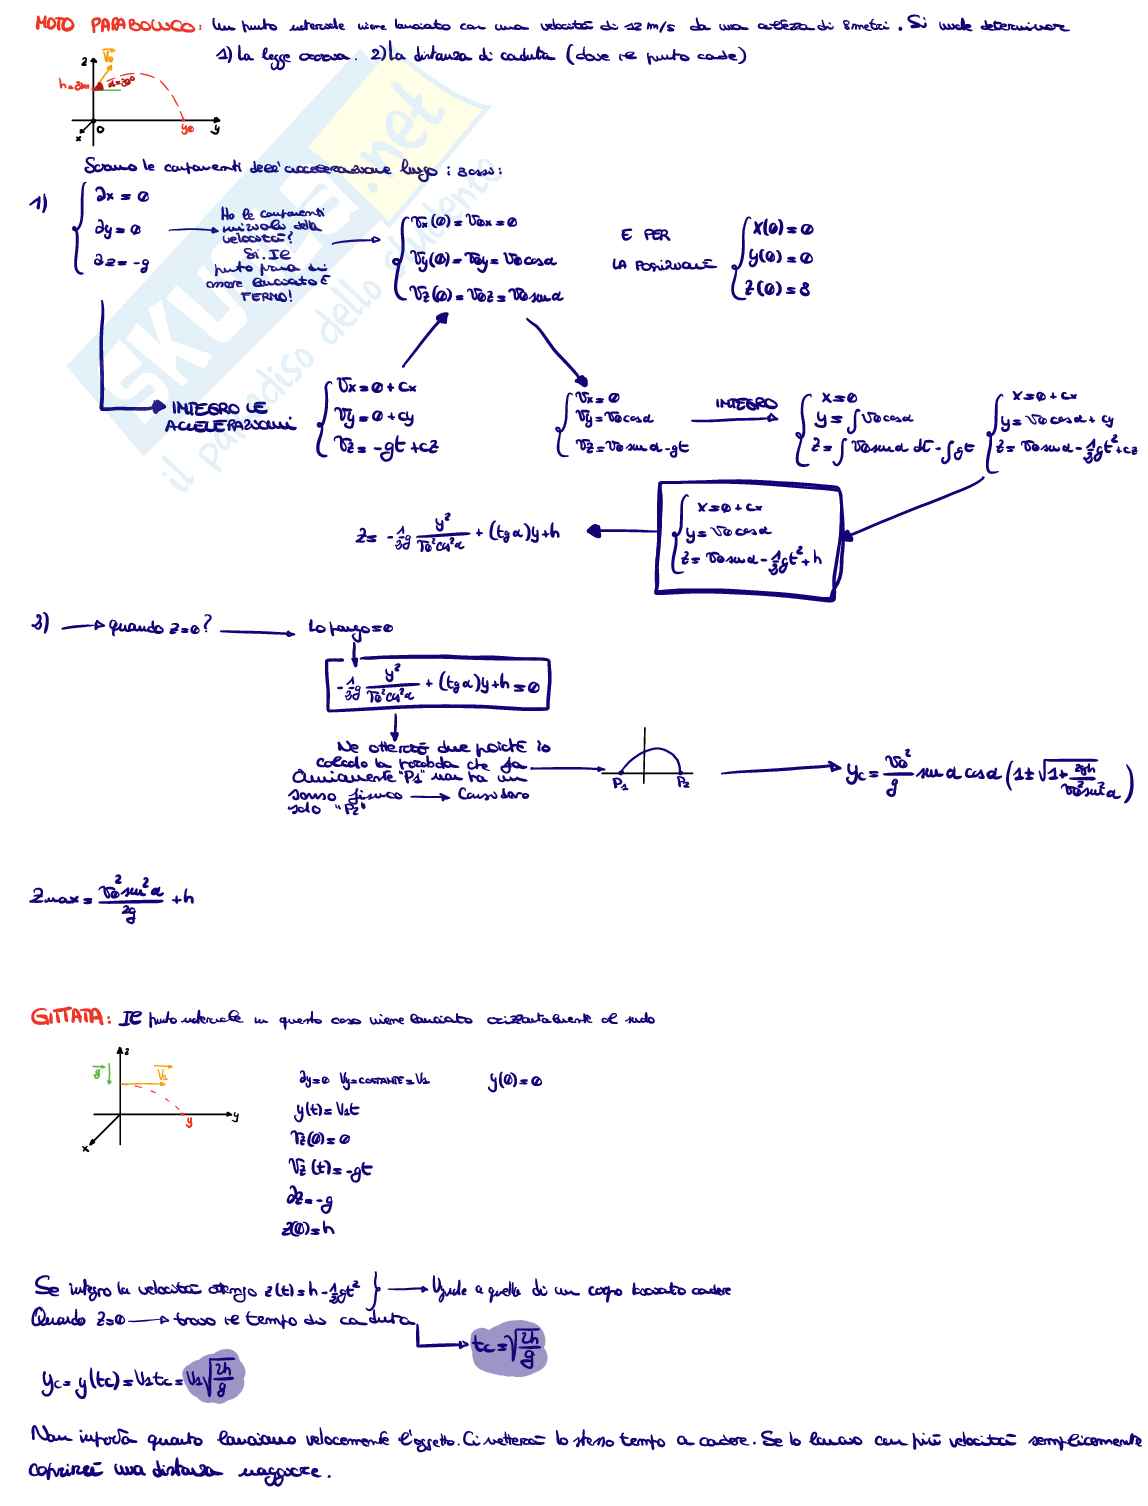 MOTO PARABOLICO: Un punto materiale viene lanciato con una velocità di 12 m/s da una altezza di 2 metri. Si vuole determinare
1) La legge oraria. 2) La distanza di caduta (dove il punto cade)
z
V₀
h=2m
α=30°
x
O
y₀
y
Scrivo le componenti dell'accelerazione lungo i 3 assi:
1)
ax = 0
ay = 0
az = -g
Ho le componenti iniziali della velocità? Si. Il punto prima di essere lanciato è FERMO!
Vx(0) = V0x = 0
Vy(0) = V0y = V0 cosα
Vz(0) = V0z = V0 sinα
E PER
LA POSIZIONE
X(0) = 0
y(0) = 0
Z(0) = 2
INTEGRO LE
ACCELERAZIONI
Vx = 0 + cx
Vy = 0 + cy
Vz = -gt + cz
Vx = 0
Vy = V0 cosα
Vz = V0 sinα - gt
INTEGRO
X = 0
y = ∫ V0 cosα
Z = ∫ V0 sinα dt - ∫ gt
X = 0 + cx
y = V0 cosα + cy
z = V0 sinα - ½gt² + cz
X = 0 + cx
y = V0 cosα
z = V0 sinα - ½gt² + h
Z = -½g y²/(V0² cos²α) + (tgα)y + h
2)
quando z=0?
Lo pongo = 0
-½g y²/(V0² cos²α) + (tgα)y + h = 0
Ne otterrò due poiché io
calcolo la parabola che fa
Ovviamente "P1" non ha un
senso fisico → Considero
solo "P2"
P1
P2
yc = V0²/g sinα cosα (1 ± √(1 + 2gh/(V0² sin²α)))
Zmax = V0² sin²α/2g + h
GITTATA: Il punto materiale in questo caso viene lanciato orizzontalmente al suolo
z
g
V1
y
y
x
ay=0 Vy=COSTANTE=V1
y(0) = 0
y(t) = V1t
Vz(0) = 0
Vz(t) = -gt
az = -g
z(0) = h
Se integro la velocità ottengo z(t) = h - ½gt² } → Uguale a quella di un corpo lasciato cadere
Quando z=0 → trovo il tempo di caduta
tc = √(2h/g)
yc = y(tc) = V1tc = V1√(2h/g)
Non importa quanto lanciamo velocemente l'oggetto. Ci metterà lo stesso tempo a cadere. Se lo lancio con più velocità semplicemente
coprirà una distanza maggiore.
SKUOLA.net
il paradiso dello studente